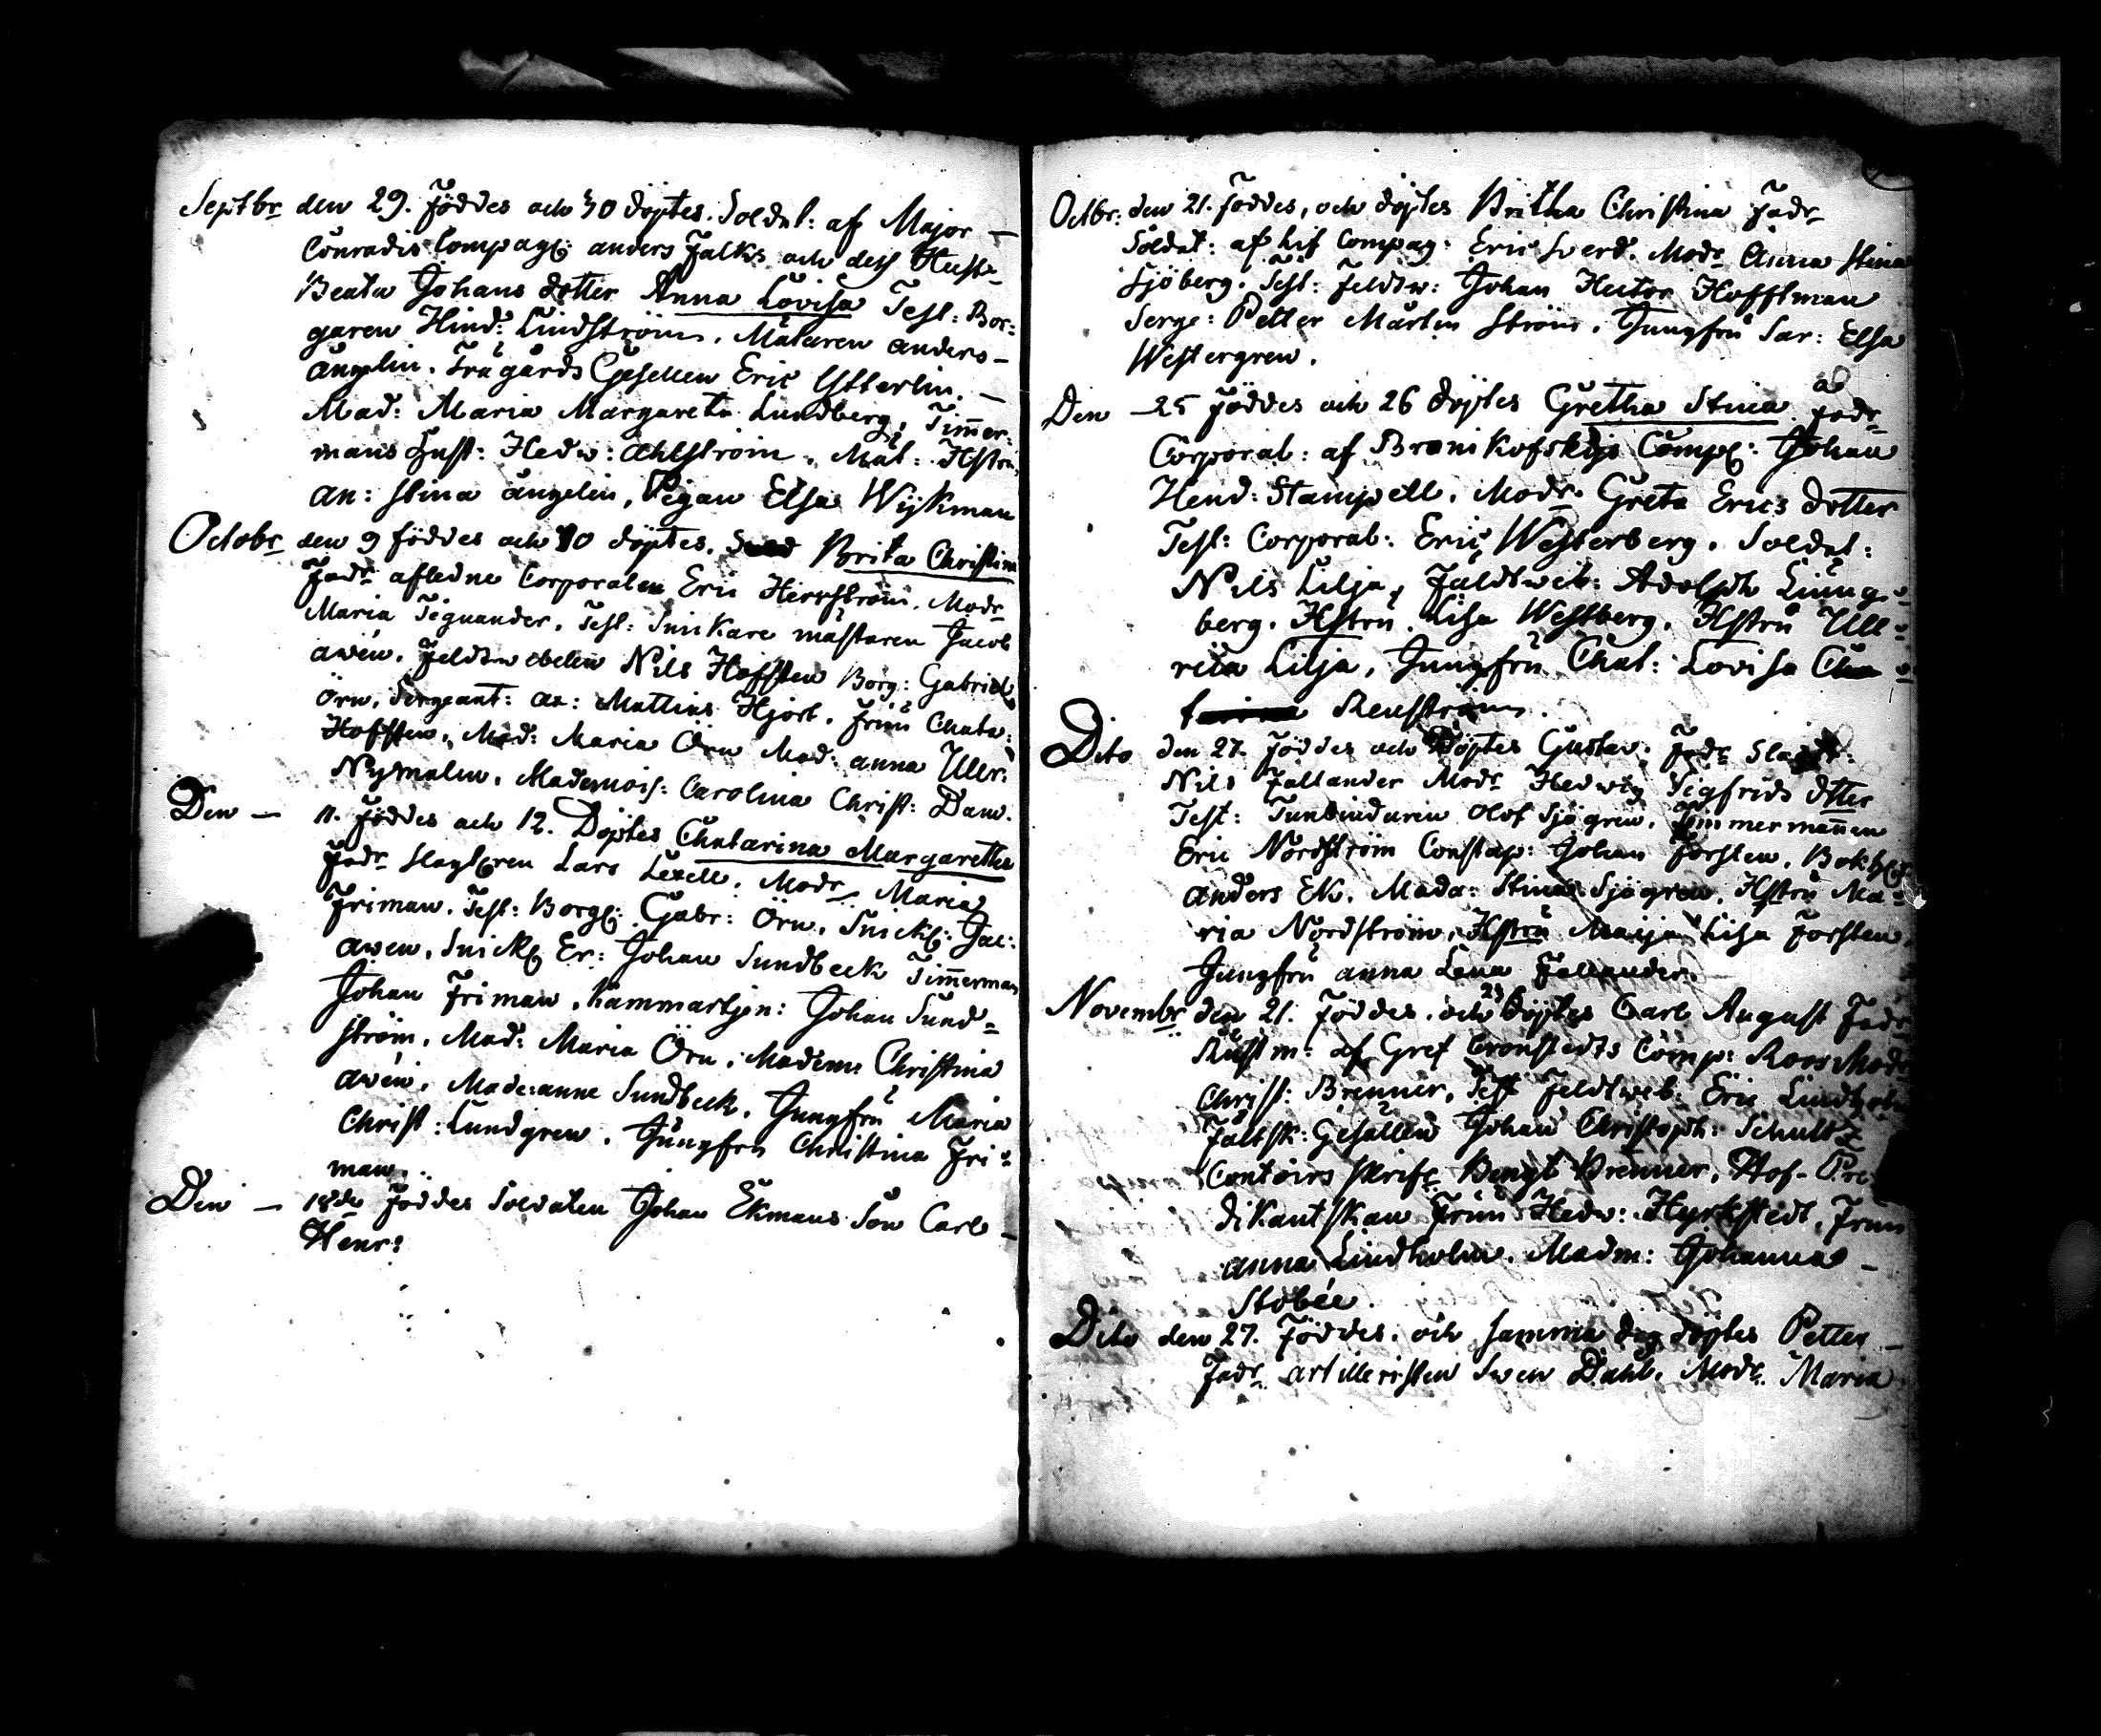 Septbr den 29. Föddes och 30 döptes. Soldat: af Major —
Conradis Compag: anders Falks och dess Hust
Beata Johans dotter Anna Lovisa Test: Bor:
garen Hind: Lindström, Målaren anders —
ångelin. Trägårds Gesellen Eric Ytterlin. —
Mad: Maria Margareta Lundberg, Timer:
mans Hust: Hedw: Ahlström, Mål: Hstru
an: Stina ångelin, Pigan Elsa Wijkman
Octobr den 9 föddes och 10 döptes. Brita Christina
Fadr afledne Corporalen Eric Herrström. Modr
Maria Tegnander. Test: Snikare mästaren Jacob
awén. Feldtwebelen Nils Hoffsten Borg: Gabriel
Örn, Sergeant: ax: Mattias Hjort. Frun Chata:
Hoffsten, Mad: Maria Örn Mad: anna Ullr:
Nymalm. Mademois: Carolina Christ: Dam.
Den — 11. Föddes och 12. Döptes Chatarina Margaretha
Fadr Slagtren Lars Lexell. Modr Maria
Friman. Test: Borg: Gabr: Örn. Snick: Jac:
awen, Snick Er: Johan Sundbeck Timerman
Johan Friman. Kammartjen: Johan Sund=
ström. Mad: Maria Örn. Madem: Christina
awén. Mad: anne Sundbeck. Jungfru Maria
Christ: Lundgren. Jungfru Christina Fri=
man.
Den — 18de Föddes Soldaten Johan Ekmans Son Carl —
Henr:
Octbr: den 21. Föddes, och döptes Britha Christina Fadr
Soldat: af Lif Compag: Eric Sverd. Modr Anna Stina
Sjöberg. Test: Feldtw: Johan Hector Hoffman
Serge: Petter Martin Ström. Jungfru Sar: Elsa
Westergren.
Den — 25 Föddes och 26 döptes Gretha Stina Fadr
Corporal: af Branikofskijs Comp: Johan
Hend: Stampell. Modr Greta Erics dotter
Test: Corporal: Eric Westerberg. Soldat:
Nils Lilja, Fäldtweb: Adolph Liung=
berg. Hstru Lisa Westberg. Hstru Ull=
rica Lilja, Jungfru Chat: Lovisa
Renström.
Dito den 27. Föddes och Döptes Gustav. Fadr Slagt:
Nils Fallander Modr Hedwig Sigfrids dtter
Test: Tunbindaren Olof Sjögren, Timmermanen
Eric Nordström Constap: Johan Forsten, Bokh:
anders Ek. Mada: Stina Sjögren, Hstru Ma=
ria Nordström, Hstru Maija Lisa Forsten,
Jungfru anna Lena Fallander.
Novembr den 21. Föddes. och 23 Döptes Carl August Fadr
Rustm: af Gref Cronstedts Comp: Roos Modr
Christ: Brenner. Test Feldtweb: Eric Lindholm
Fältsk: Gesällen Johan Christoph: Schultz
Contoirs Skrifr Bengt Brenner. Hof-Pre
dikantskan Frun Hedw: Hyrkstedt, Frun
anna Lindholm. Madm: Johanna —
Stobée.
Dito den 27. Föddes. och samma dag döptes Petter —
Fadr artilleristen Swen Dahl. Modr Maria